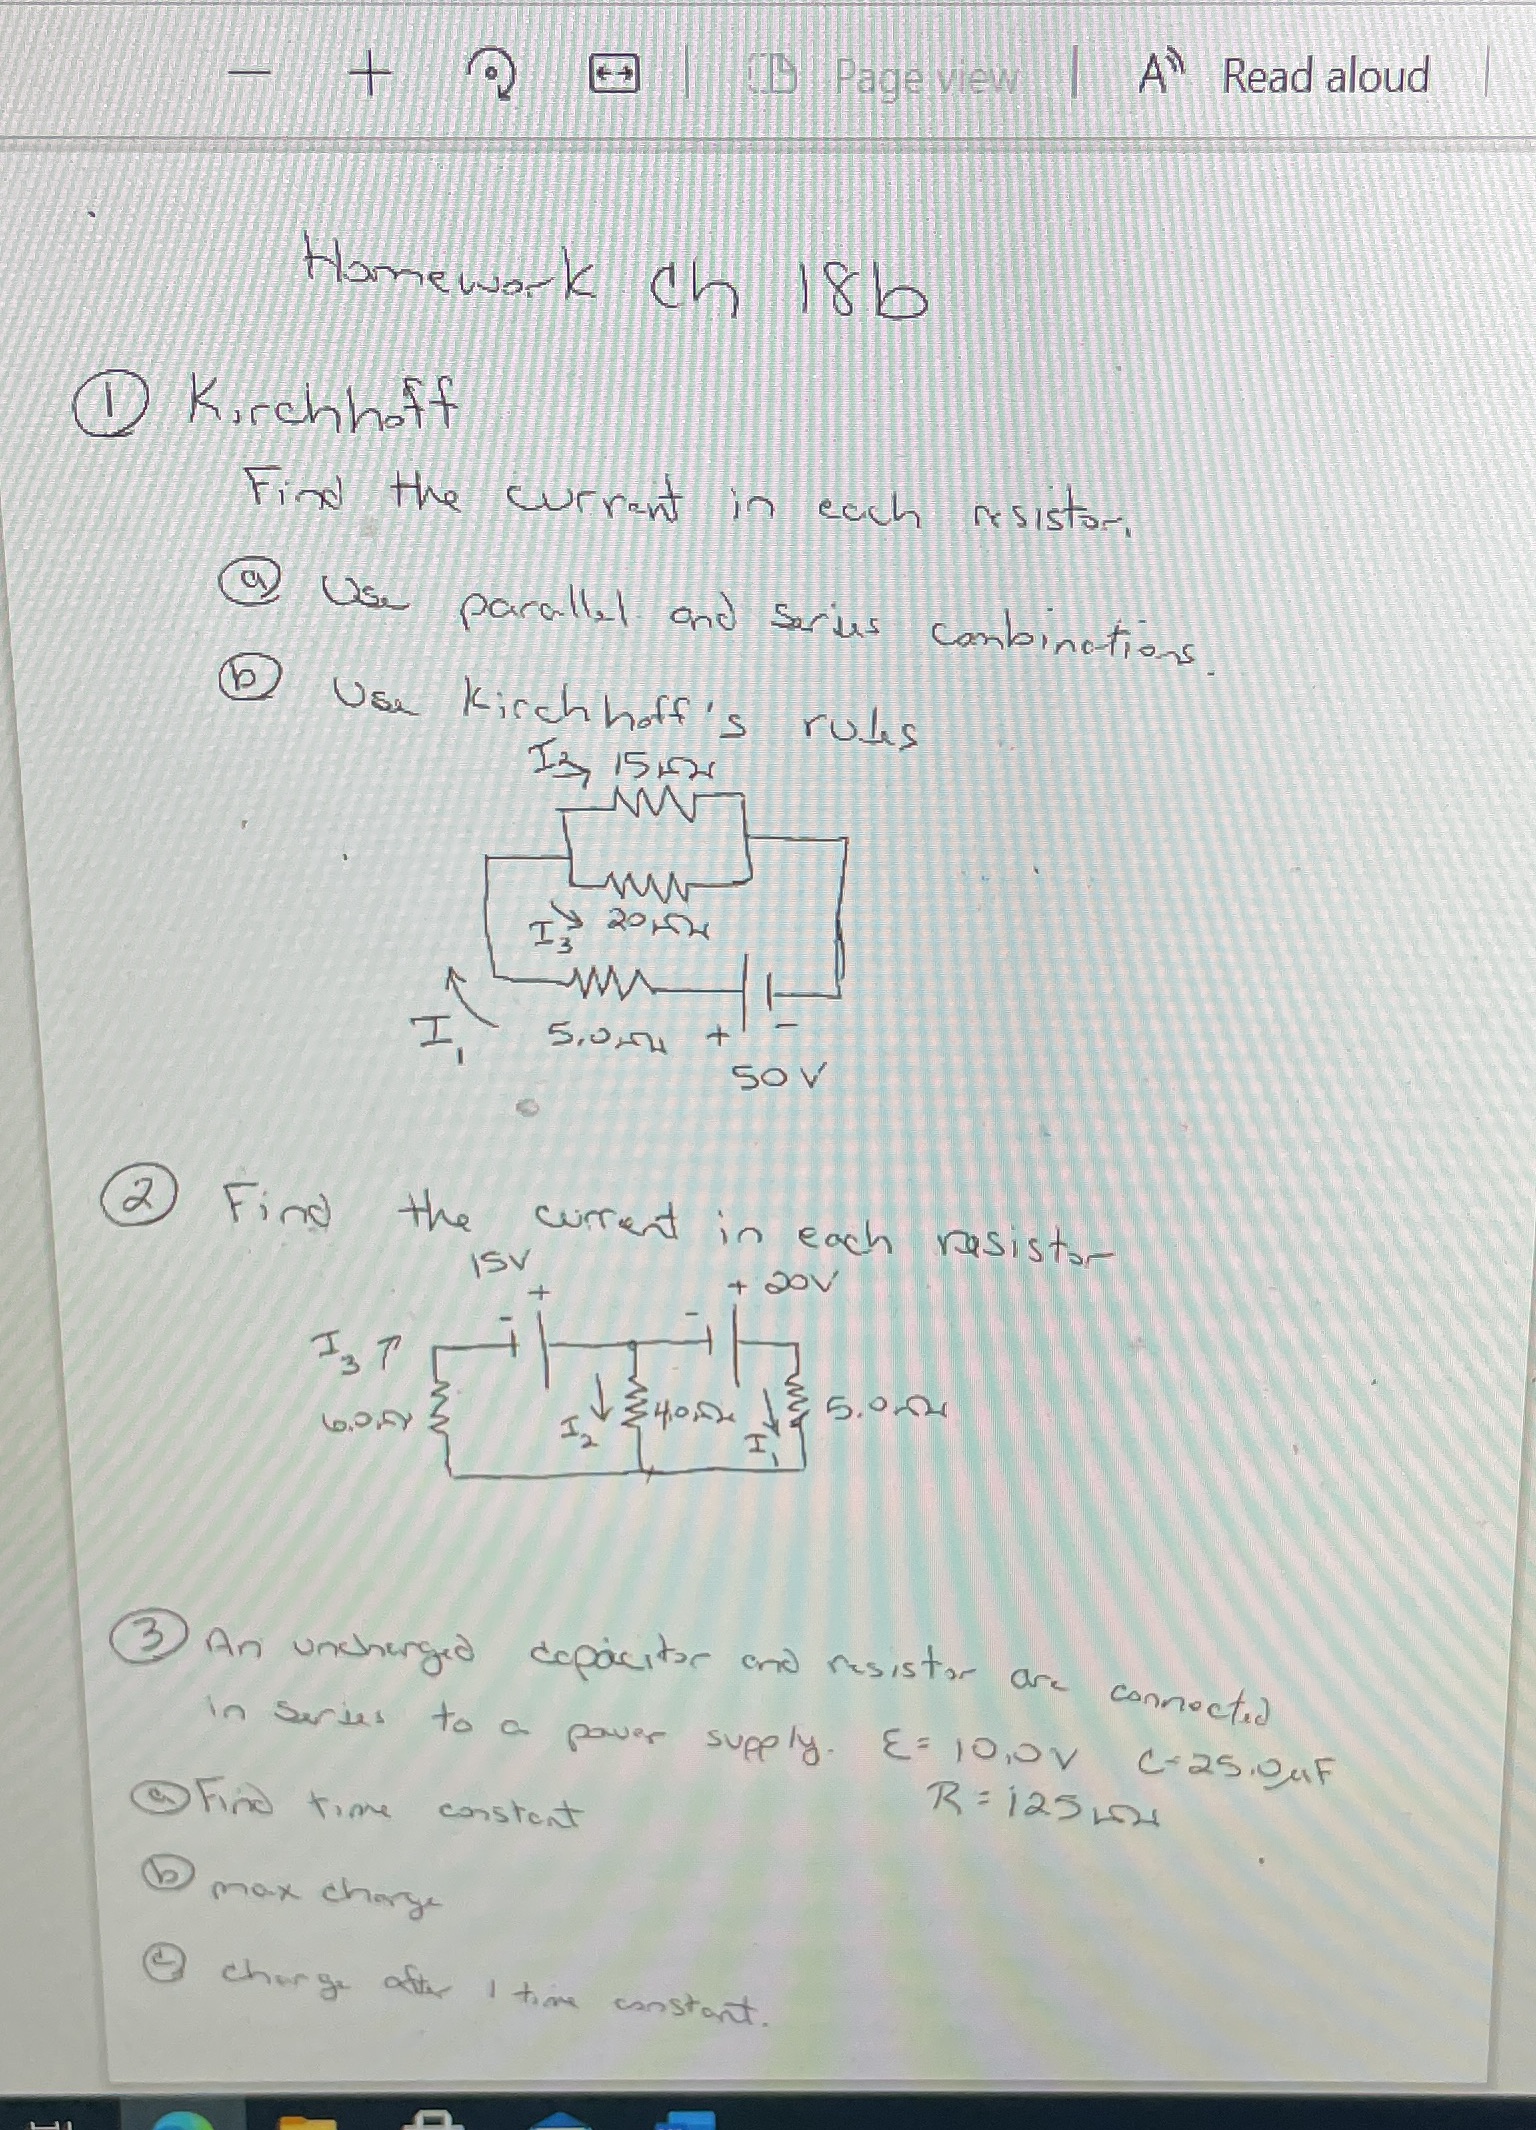 Page view
A Read aloud
Homework Ch 18b
① Kirchhoff
Find the current in each resistor.
ⓐ Use parallel and series combinations.
ⓑ Use Kirchhoff's rules
I2 15Ω
I3 20Ω
I1 5.0Ω + -
50V
② Find the current in each resistor
15V
+ + 20V
- -
I3
6.0Ω I2 4.0Ω I1 5.0Ω
③ An uncharged capacitor and resistor are connected
in series to a power supply. ε= 10.0V C=25.0μF
ⓐ Find time constant R=125Ω
ⓑ max charge
ⓒ charge after 1 time constant.